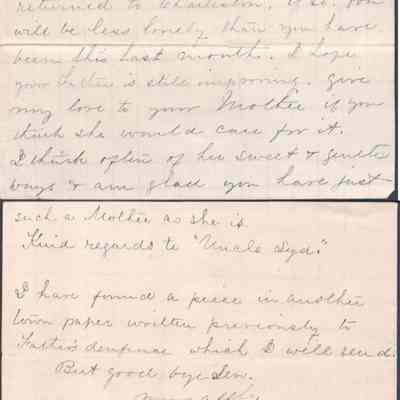 returned to Charleston. If so. you
will be less lonely than you have
been this last month. I hope
your Father is still improving. give
my love to your Mother if you
think she would care for it.
I think often of her sweet & gentle
ways & am glad you have just
such a Mother as she is
Kind regards to "Uncle Syd."
I have found a piece in another
town paper written previously to
which I will send.
But good bye